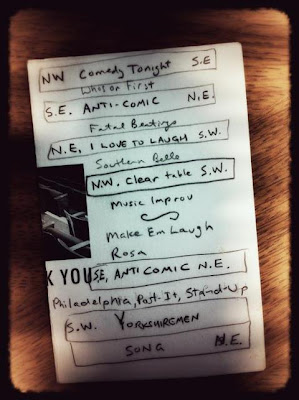 NW Comedy Tonight S.E
Who's on First
S.E. ANTI-COMIC N.E.
Fatal Beatings
N.E, I LOVE TO LAUGH S.W.
Southern Belle
N.W. Clear table S.W.
Music Improv
Make Em Laugh
Rosa
K YOU SE, ANTI COMIC N.E.
Philadelphia, Post-It, Stand-Up
S.W. YORKSHIREMEN
SONG N.E.